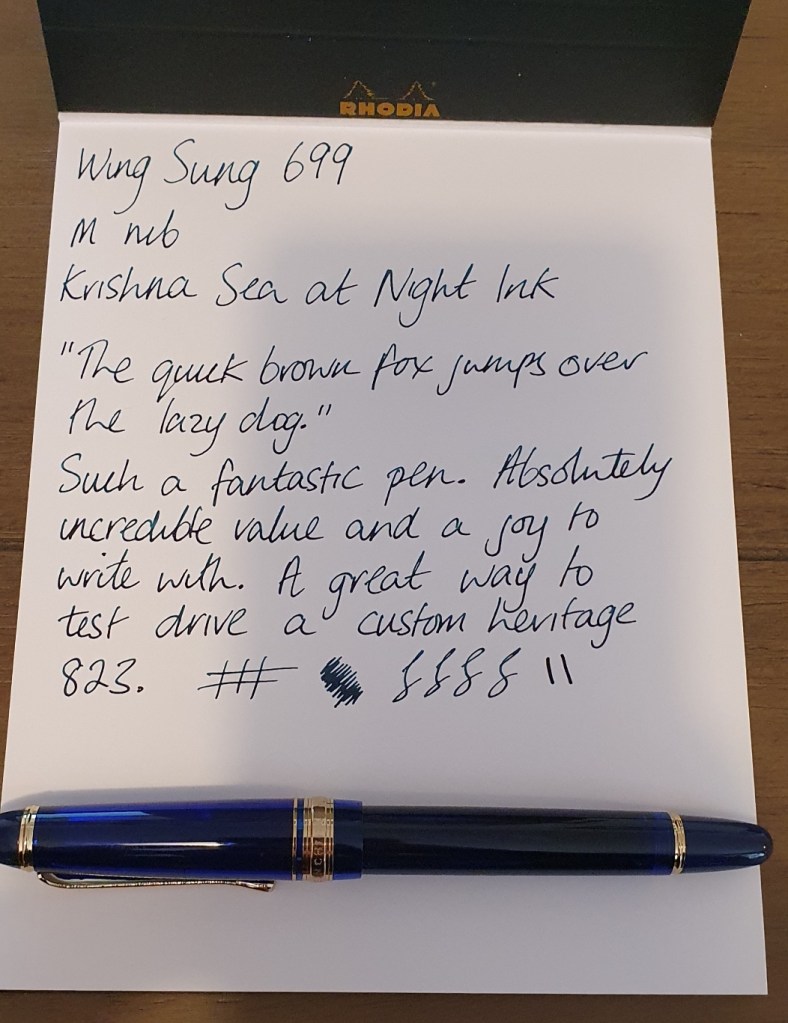 RHODIA
Wing Sung 699
M nib
Krishna Sea at Night Ink
"The quick brown fox jumps over
the lazy dog."
Such a fantastic pen. Absolutely
incredible value and a joy to
write with. A great way to
test drive a custom heritage
823.